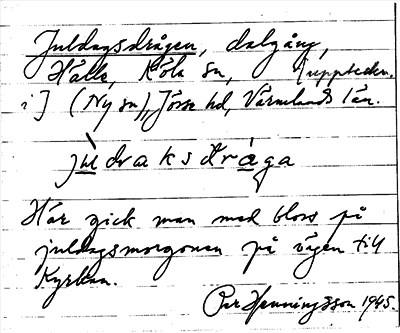 Juldagsdrågen, dalgång,
Hälle, Köla sn, (uppteckn.
i J (Ny sn), Jösse hd, Värmlands län.
jùldraksdrаga
Här gick man med bloss på
juldagsmorgonen på vägen till
Kyrkan.
Per Henningsson 1945.